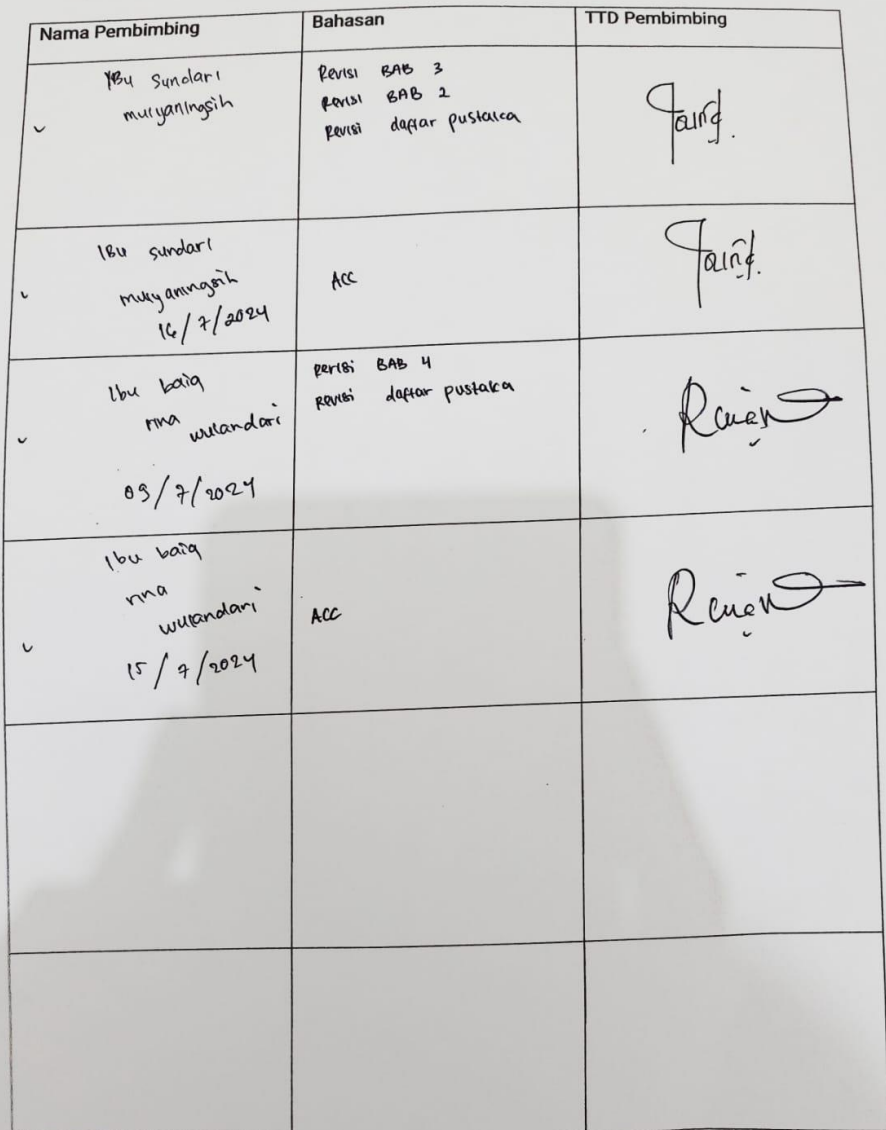 Nama Pembimbing
Bahasan
TTD Pembimbing
IBu Sundari
mulyaningsih
Revisi BAB 3
Revisi BAB 2
Revisi daftar pustaka
IBu sundari
mulyaningsih
16/7/2024
ACC
Ibu baiq
rina
wulandari
09/7/2024
Revisi BAB 4
Revisi daftar pustaka
Ibu baiq
rina
wulandari
15/7/2024
ACC